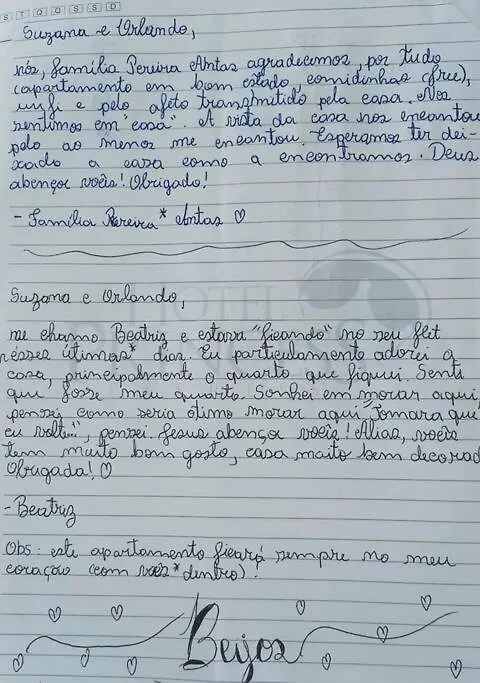 S T Q Q S S D
Suzana e Orlando,
nós, família Pereira Antas agradecemos, por tudo
(apartamento em bom estado, comidinhas (free),
wifi e pelo afeto transmitido pela casa. Nos
sentimos em "casa". A vista da casa nos encantou
pelo ao menos me encantou. Esperamos ter dei-
xado a casa como a encontramos. Deus
abençoe vocês! Obrigado!
- Família Pereira* Antas ♡
Suzana e Orlando,
me chamo Beatriz e estava "ficando" no seu flet
nesses útimos* dias. Eu particulamento adorei a
casa, principalmente o quarto que fiquei. Senti
que fosse meu quarto. Sonhei em morar aqui,
pensei como seria ótimo morar aqui "Tomara que
eu volte...", pensei. Jesus abençoe vocês! Alias, vocês
tem muito bom gosto, casa muito bem decorad
Obrigada! ♡
- Beatriz
Obs: este apartamento ficará sempre no meu
coração (com vocês* dentro).
Beijos